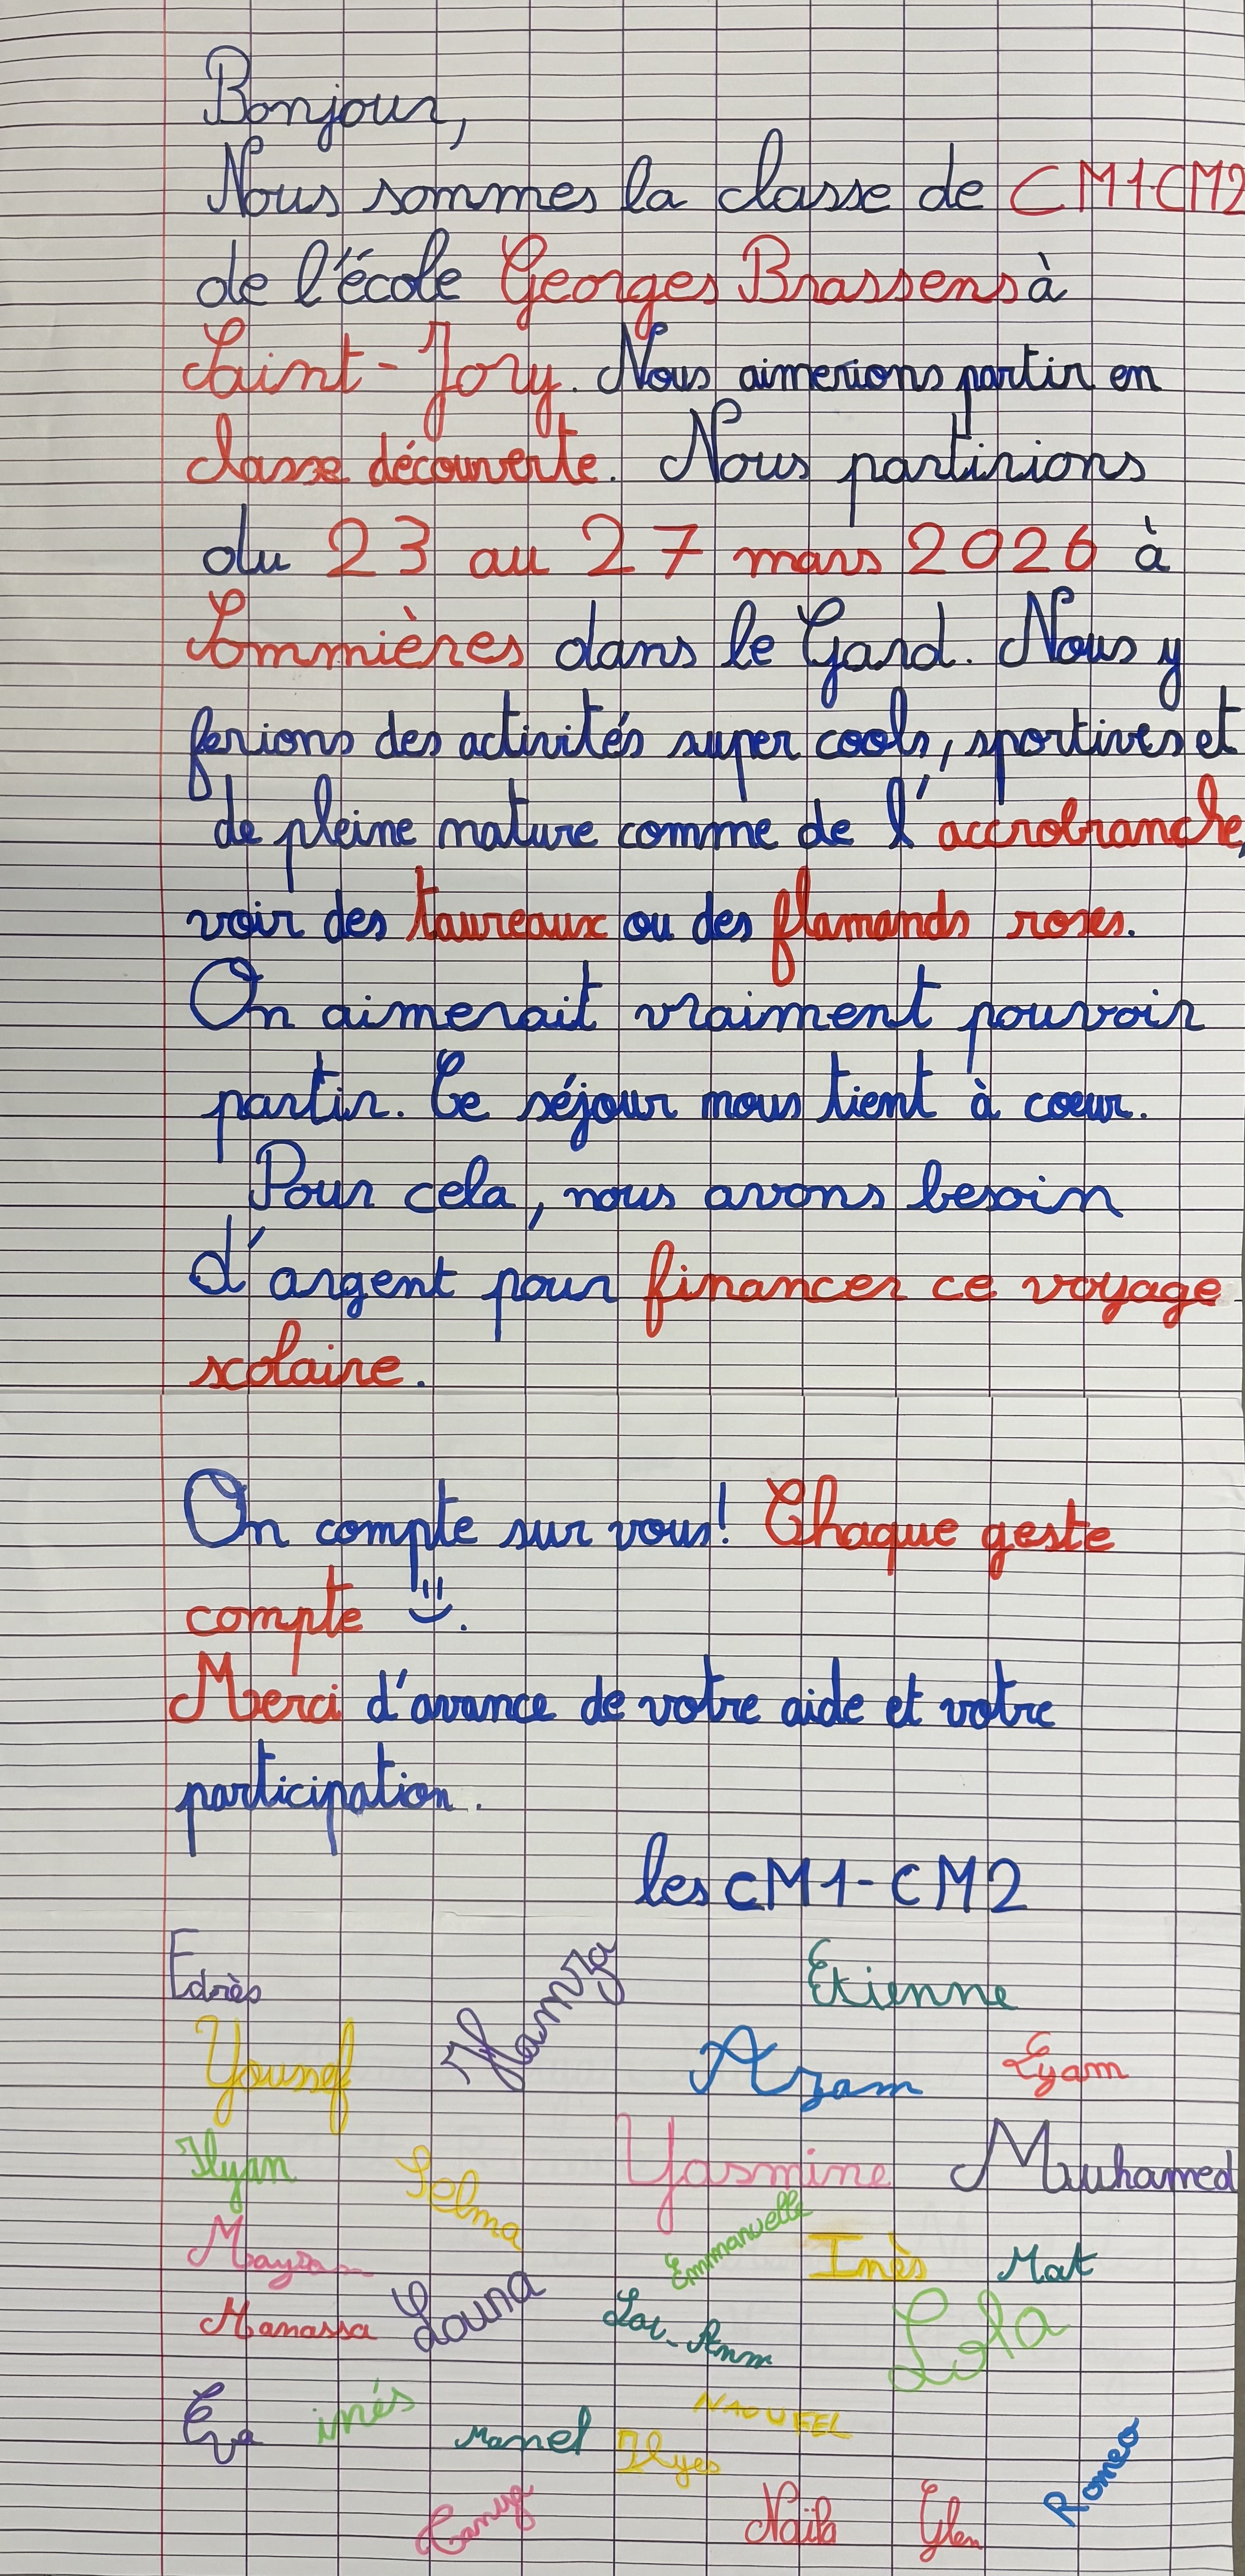 Bonjour,
Nous sommes la classe de CM1-CM2
de l'école Georges Brassens à
Saint-Jory. Nous aimerions partir en
classe découverte. Nous partirions
du 23 au 27 mars 2026 à
Sommières dans le Gard. Nous y
ferions des activités super cools, sportives et
de pleine nature comme de l'accrobranche,
voir des taureaux ou des flamands roses.
On aimerait vraiment pouvoir
partir. Ce séjour nous tient à coeur.
Pour cela, nous avons besoin
d'argent pour financer ce voyage
scolaire.
On compte sur vous! Chaque geste
compte .
Merci d'avance de votre aide et votre
participation.
les CM1-CM2
Edrès Hamza Etienne
Youssef Azam Eyam
Ilyan Selma Yasmine Muuhamed
Mayra Emmanuelle Inès Mat
Manassa Louna Lou-Ann Lola
Eva inés Manel Ilyes NAOUFEL Romeo
Naïla Ylan